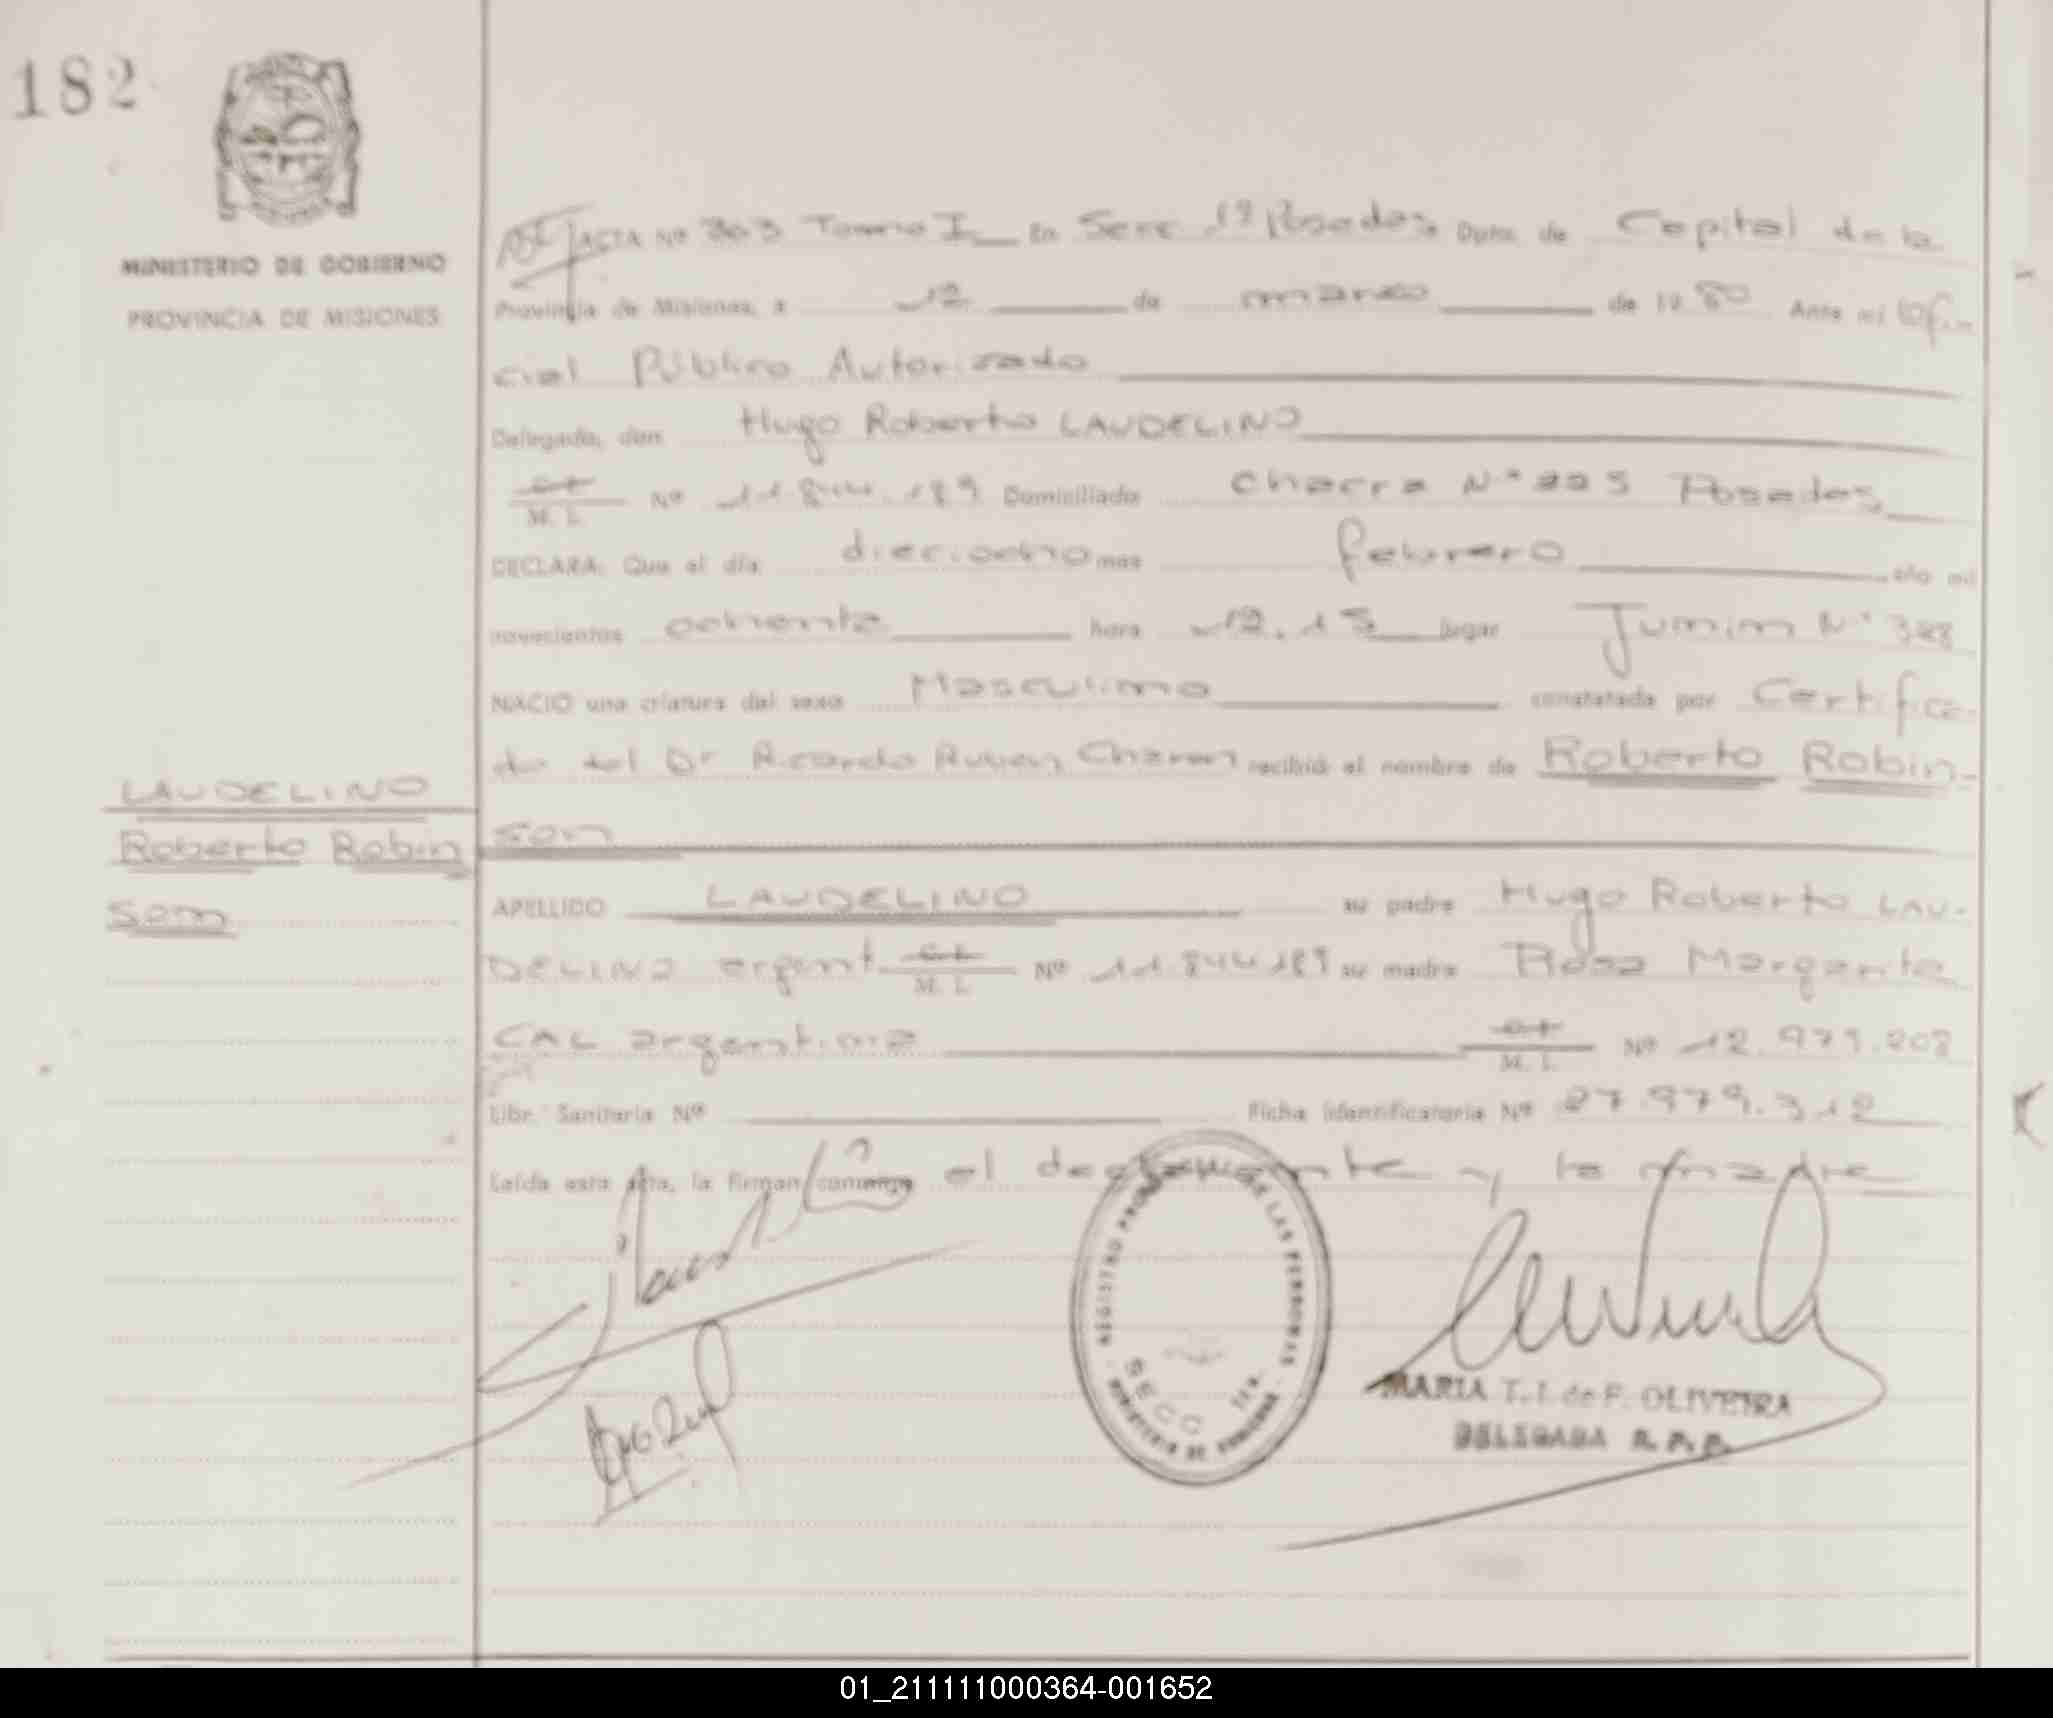 182
MINISTERIO DE GOBIERNO
PROVINCIA DE MISIONES
ACTA Nº 363 Tomo I En Secc 1º Posadas Dpto. de Capital de la
Provincia de Misiones, a 12 de marzo de 1980 Ante mi Ofi-
cial Público Autorizado
Delegado, don Hugo Roberto LAUDELINO
M. I. Nº 11.844.189 Domiciliado Chacra Nº 225 Posadas
DECLARA: Que el día dieciocho mes febrero año mil
novecientos ochenta hora 12.15 lugar Junin Nº 328
NACIO una criatura del sexo Masculino constatada por Certifica-
do del Dr Ricardo Ruben recibió el nombre de Roberto Robin-
son
LAUDELINO
Roberto Robin
son
APELLIDO LAUDELINO su padre Hugo Roberto LAU-
DELINO argent. M. I. Nº 11.844.189 su madre Rosa Margarita
CAL argentina M. I. Nº 12.979.208
Libr. Sanitaria Nº Ficha identificatoria Nº 27.979.312
Leída esta acta, la firman conmigo el declarante y la madre
REGISTRO DE LAS PERSONAS
SECC 1ra.
MINISTERIO DE GOBIERNO
MARIA T. I. de F. OLIVEIRA
DELEGADA R. P. P.
01_211111000364-001652